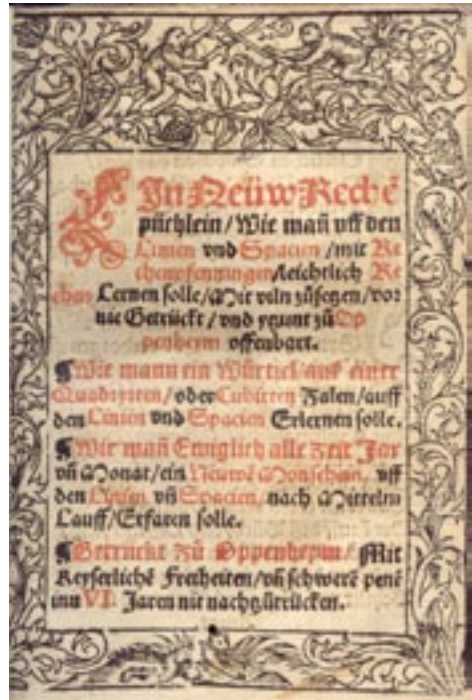 EIn Neüw Rechē
püchlein/Wie mañ vff den
Linien vnd Spacien/mit Re
chenpfenningen/leichtlich Re
chen Lernen solle/Mit viln zůsetzen/vor
nie Getrückt/vnd yetzunt zů Op
penheym offenbart.
¶Wie mann ein Würtzel/auß einer
Quadraten/oder Cubicen Zalen/auff
den Linien vnd Spacien Erlernen solle.
¶Wie mañ Ewiglich alle zeit Jar
vñ Monat/ein Neuwē Monschein, vff
den Linien vñ Spacien, nach Mittelm
Lauff/Erfaren solle.
¶Getruckt zů Oppenheym/Mit
Keyserlichē Freiheiten/vñ schwerē penē
inn VI. Jaren nit nachzůtrücken.